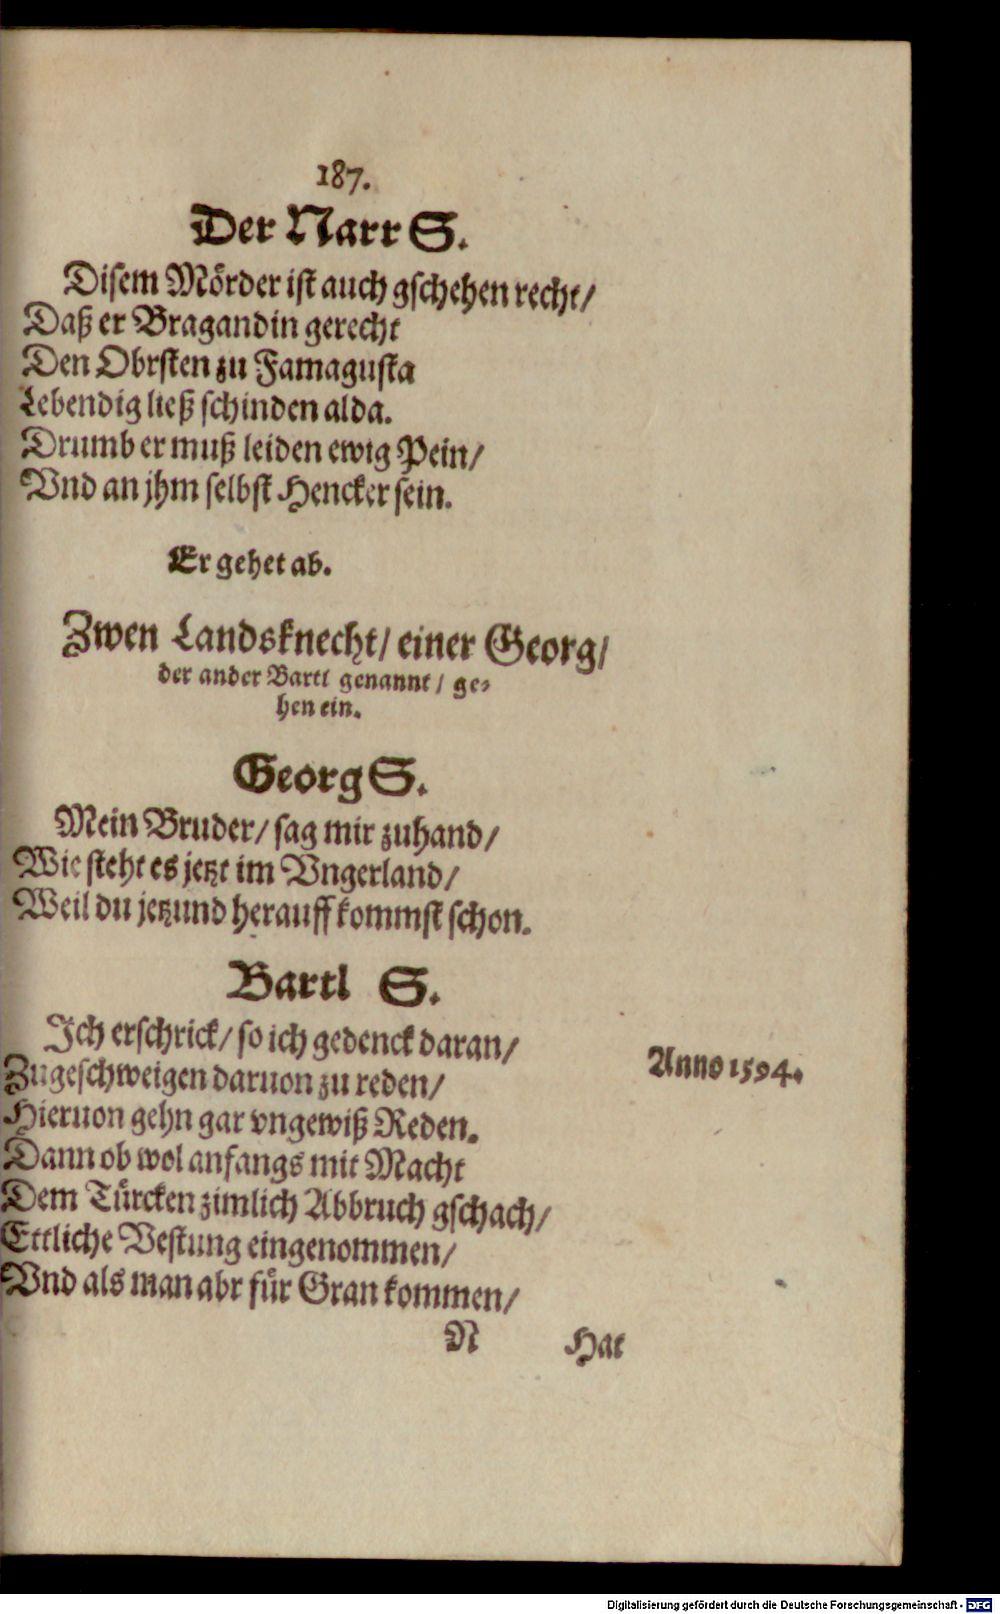 187.
Der Narr S.
Disem Mörder ist auch gschehen recht/
Daß er Bragandin gerecht
Den Obrsten zu Famagusta
Lebendig ließ schinden alda.
Drumb er muß leiden ewig Pein/
Vnd an jhm selbst Hencker sein.
Er gehet ab.
Zwen Landsknecht/ einer Georg/
der ander Bartl genannt/ ge-
hen ein.
Georg S.
Mein Bruder/ sag mir zuhand/
Wie steht es jetzt im Vngerland/
Weil du jetzund herauff kommst schon.
Bartl S.
Ich erschrick/ so ich gedenck daran/
Anno 1594.
Zugeschweigen daruon zu reden/
Hieruon gehn gar vngewiß Reden.
Dann ob wol anfangs mit Macht
Dem Türcken zimlich Abbruch gschach/
Ettliche Vestung eingenommen/
Vnd als man abr für Gran kommen/
N Hat
Digitalisierung gefördert durch die Deutsche Forschungsgemeinschaft - DFG